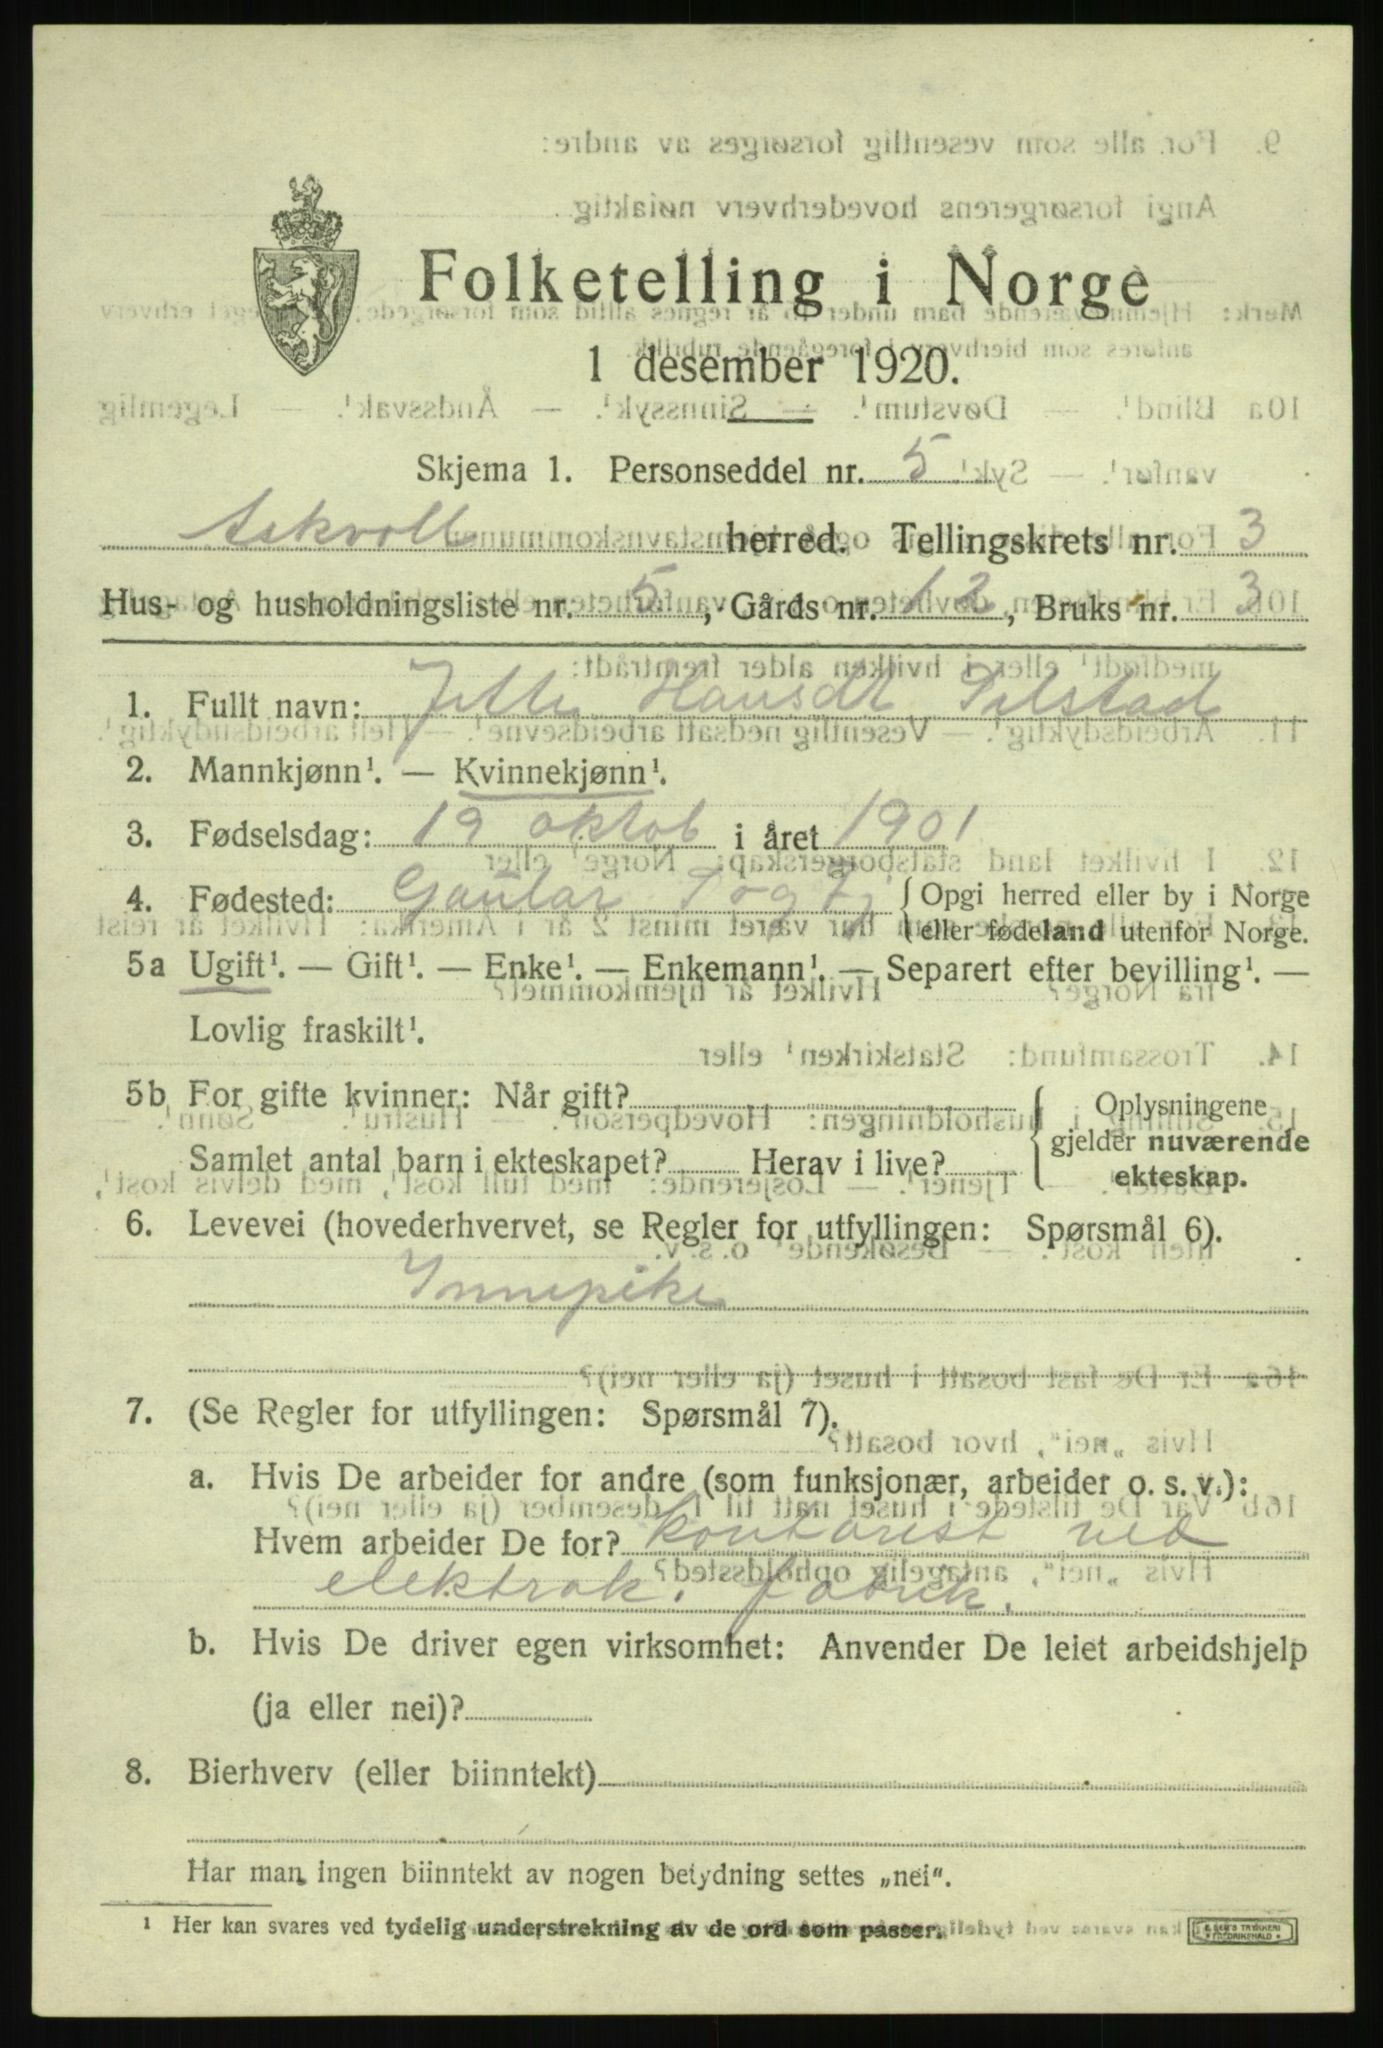 Folketelling i Norge
1 desember 1920.
Skjema 1. Personseddel nr. 5
Askvoll herred. Tellingskrets nr. 3
Hus- og husholdningsliste nr. 5, Gårds nr. 12, Bruks nr. 3
1. Fullt navn: Hansdt
2. Mannkjønn¹. — Kvinnekjønn¹.
3. Fødselsdag: 19 oktob i året 1901
4. Fødested: Gaular S og Fj { Opgi herred eller by i Norge
eller fødeland utenfor Norge.
5a Ugift¹. — Gift¹. — Enke¹. — Enkemann¹. — Separert efter bevilling¹. —
Lovlig fraskilt¹.
5b For gifte kvinner: Når gift?
Samlet antal barn i ekteskapet? Herav i live?
Oplysningene
gjelder nuværende
ekteskap.
6. Levevei (hovederhvervet, se Regler for utfyllingen: Spørsmål 6).
Innepike
7. (Se Regler for utfyllingen: Spørsmål 7).
a. Hvis De arbeider for andre (som funksjonær, arbeider o. s. v.):
Hvem arbeider De for? kontorist ved
elektrok. fabrik.
b. Hvis De driver egen virksomhet: Anvender De leiet arbeidshjelp
(ja eller nei)?
8. Bierhverv (eller biinntekt)
Har man ingen biinntekt av nogen betydning settes „nei“.
¹ Her kan svares ved tydelig understrekning av de ord som passer.